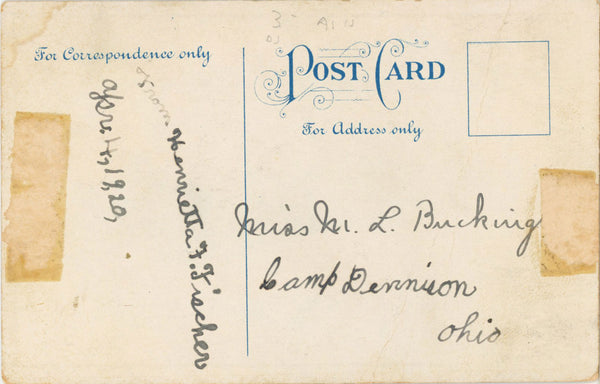 For Correspondence only
POST CARD
For Address only
From Henrietta F. Fischer
Apr. 4, 1920,
Miss M. L. Bucking
Camp Dennison
Ohio